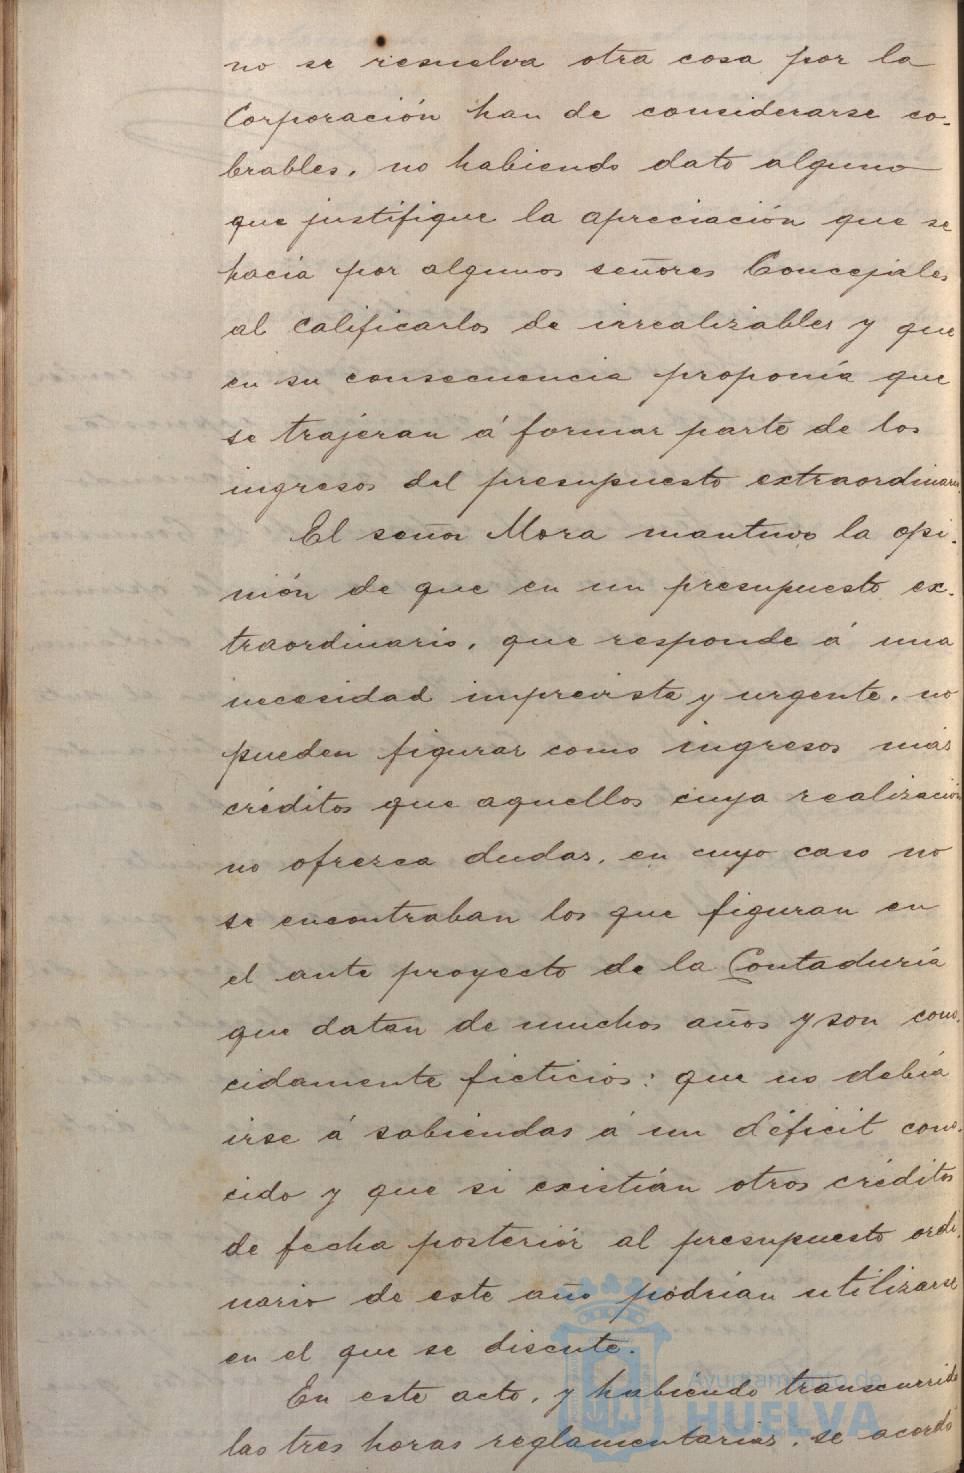 no se resuelva otra cosa por la
Corporación han de considerarse co-
brables, no habiendo dato alguno
que justifique la apreciación que se
hacía por algunos señores Concejales
al calificarlos de irrealizables y que
en su consecuencia proponía que
se trajeran á formar parte de los
ingresos del presupuesto extraordinario.
El señor Mora mantuvo la opi-
nión de que en un presupuesto ex-
traordinario, que responde á una
necesidad imprevista y urgente, no
pueden figurar como ingresos más
créditos que aquellos cuya realización
no ofrezca dudas, en cuyo caso no
se encontraban los que figuran en
el ante proyecto de la Contaduría
que datan de muchos años y son cono-
cidamente ficticios: que no debía
irse á sabiendas á un déficit cono-
cido y que si existían otros créditos
de fecha posterior al presupuesto ordi-
nario de este año podrían utilizarse
en el que se discute.
En este acto, y habiendo transcurrido
las tres horas reglamentarias, se acordó
Ayuntamiento de
HUELVA